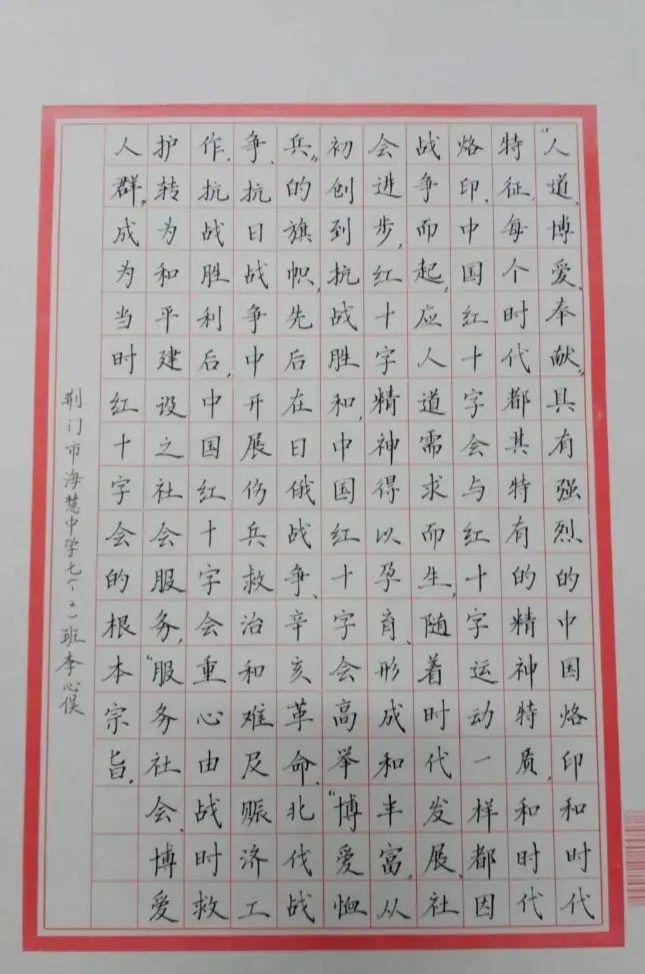 “人道、博爱、奉献”具有强烈的中国烙印和时代
特征，每个时代都其特有的精神特质，和时代
烙印，中国红十字会与红十字运动一样都因
战争而起，应人道需求而生，随着时代发展、社
会进步，红十字精神得以孕育、形成和丰富，从
初创到抗战胜和，中国红十字会高举“博爱恤
兵”的旗帜，先后在日俄战争、辛亥革命、北伐战
争、抗日战争中开展伤兵救治和难及赈济工
作，抗战胜利后，中国红十字会重心由战时救
护转为和平建设之社会服务，“服务社会、博爱
人群”，成为当时红十字会的根本宗旨。
荆门市海慧中学七班李心